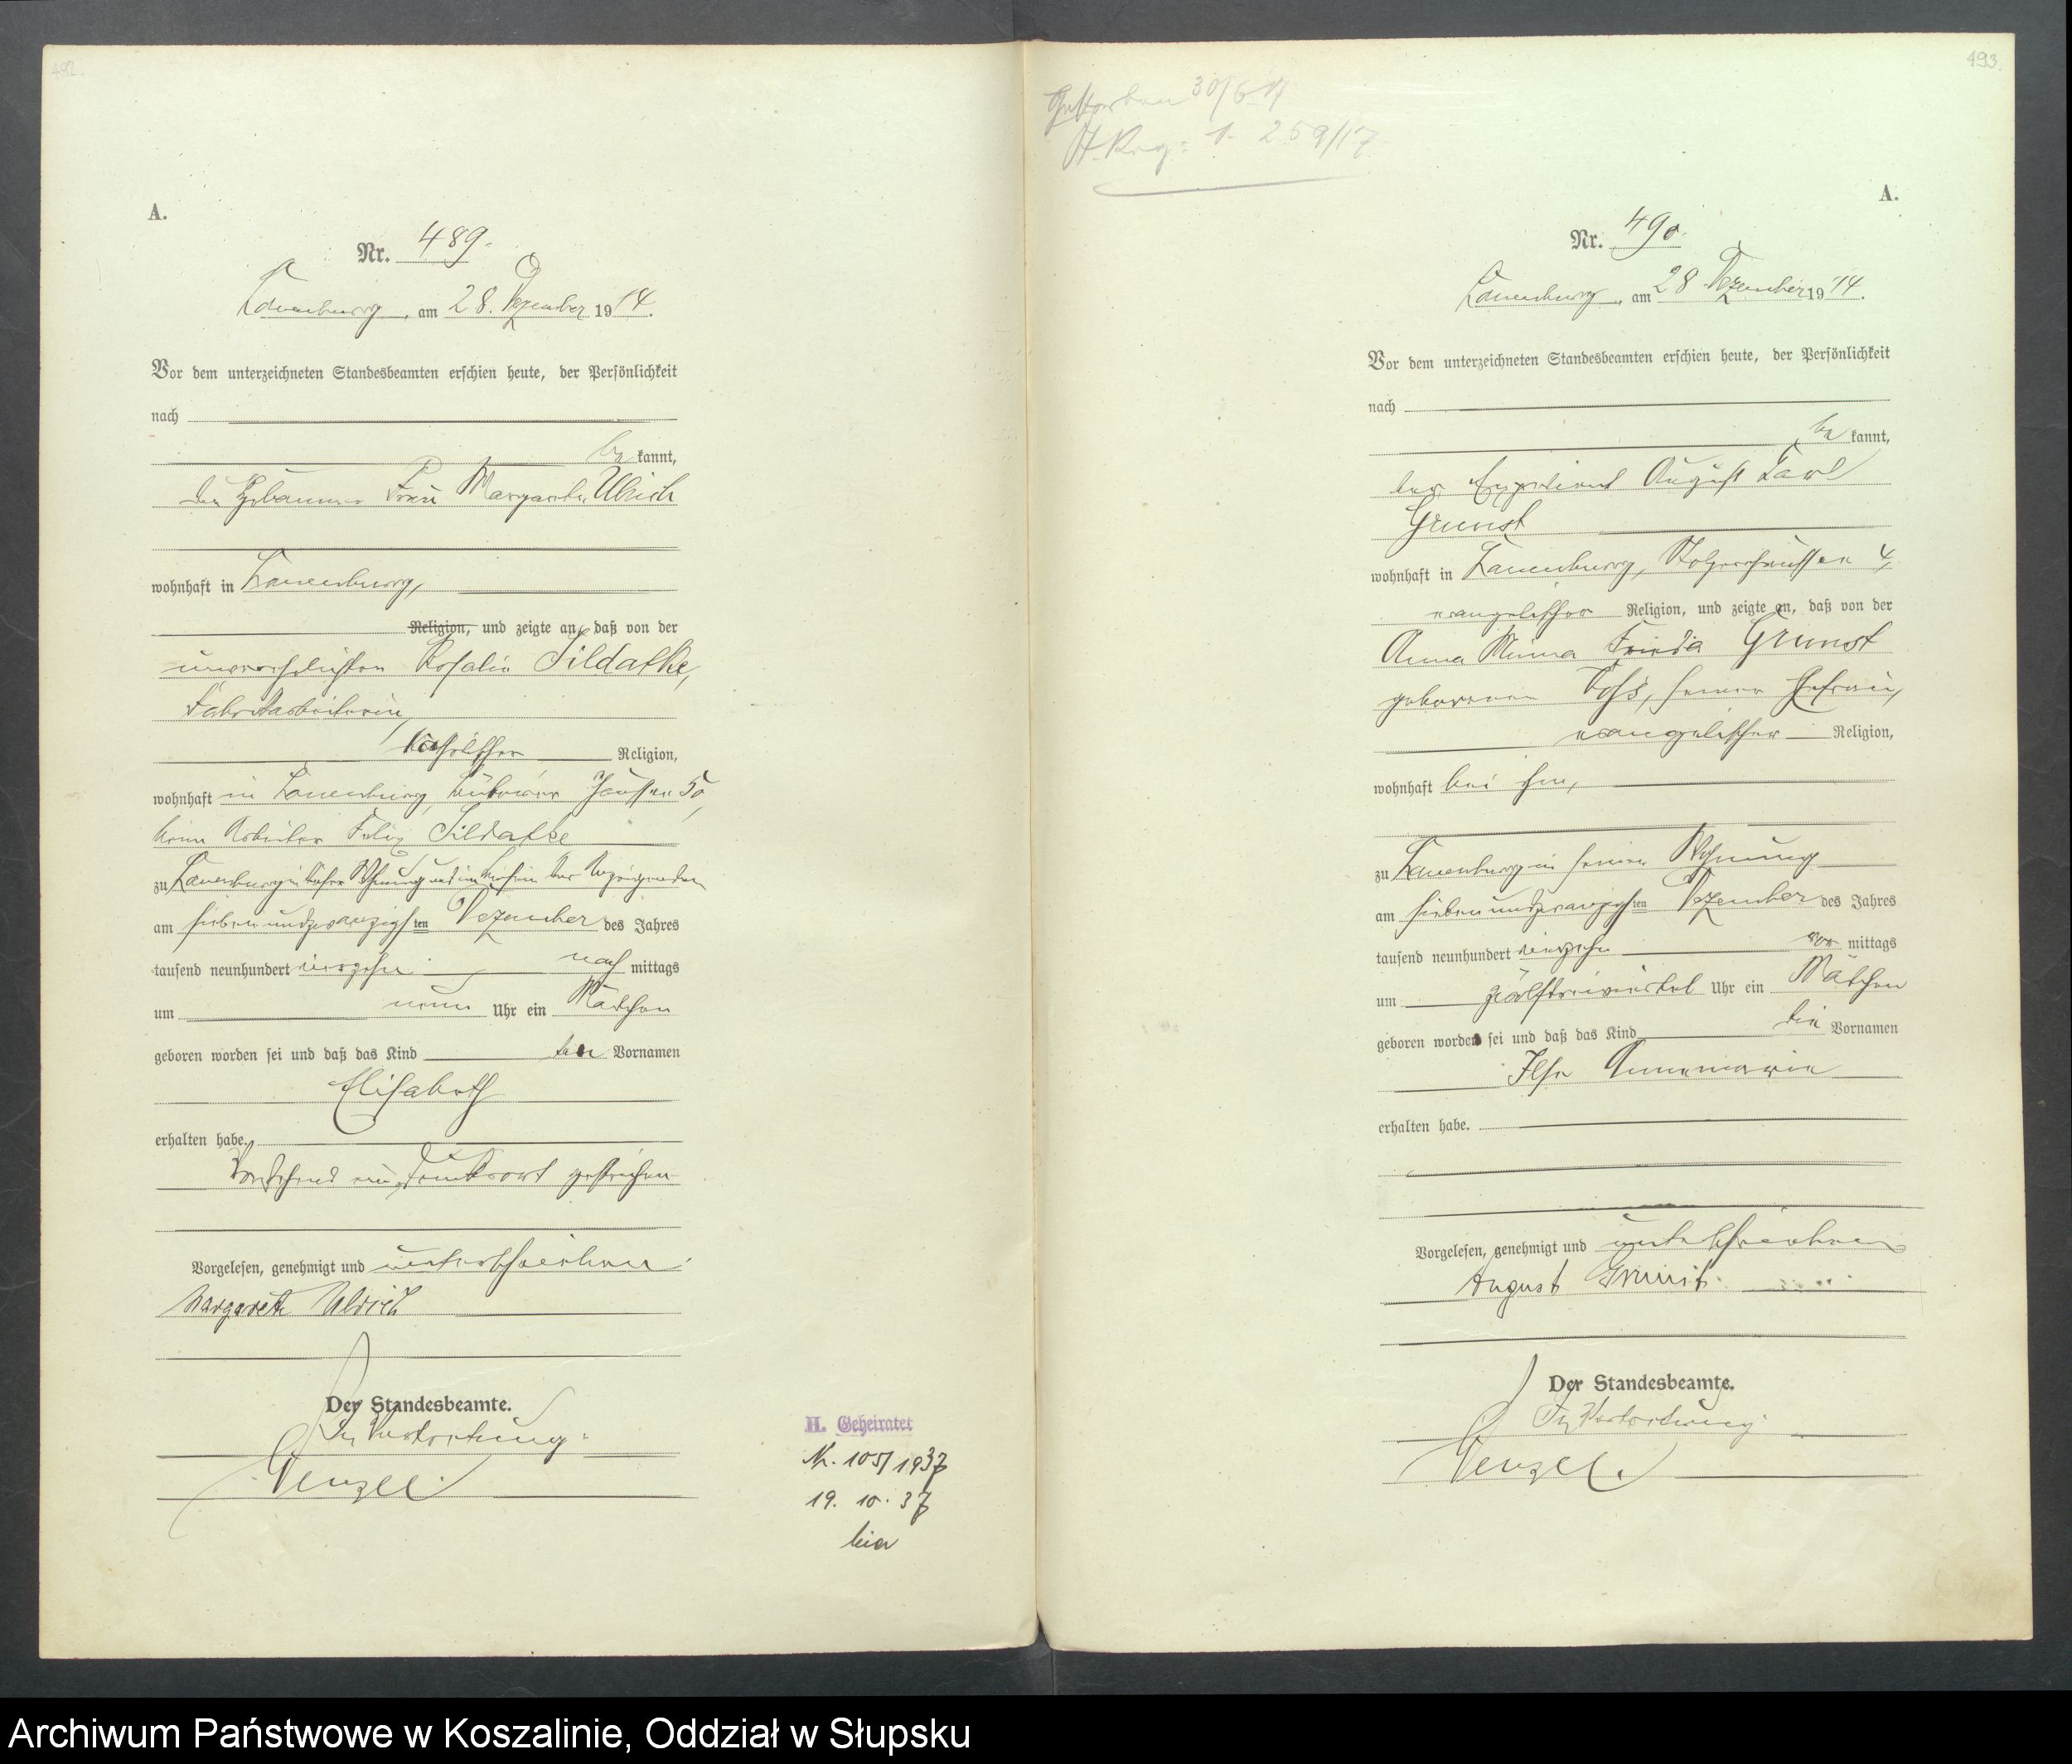 492.
A.
Nr. 489.
Lauenburg, am 28. Dezember 1914.
Vor dem unterzeichneten Standesbeamten erschien heute, der Persönlichkeit
nach
be kannt,
die Hebamme Frau Margarete Ulrich
wohnhaft in Lauenburg,
Religion, und zeigte an, daß von der
unverehelichten Rosalie Sildatke,
Fabrikarbeiterin,
katholischer Religion,
wohnhaft in Lauenburg, Bütower Chaussee 50,
beim Arbeiter Felix Sildatke
zu Lauenburg in dieser Wohnung und im Beisein der Anzeigenden
am siebenundzwanzigsten Dezember des Jahres
tausend neunhundert vierzehn nach mittags
um neun Uhr ein Mädchen
geboren worden sei und daß das Kind den Vornamen
Elisabeth
erhalten habe.
Vorstehend ein Druckwort gestrichen
Vorgelesen, genehmigt und unterschrieben
Margarete Ulrich
Der Standesbeamte.
In Vertretung:
Wenzel.
H. Geheiratet
Nr. 105/1937
19. 10. 37
hier
493.
Gestorben 30/6 17
St. Reg: 1. 259/17
A.
Nr. 490.
Lauenburg, am 28 Dezember 1914.
Vor dem unterzeichneten Standesbeamten erschien heute, der Persönlichkeit
nach
be kannt,
der Expedient August Karl
Grunst
wohnhaft in Lauenburg, 4,
evangelischer Religion, und zeigte an, daß von der
Anna Minna Frieda Grunst
geborenen Voß, seiner Ehefrau,
evangelischer Religion,
wohnhaft bei ihm,
zu Lauenburg in seiner Wohnung
am siebenundzwanzigsten Dezember des Jahres
tausend neunhundert vierzehn vor mittags
um zwölfdreiviertel Uhr ein Mädchen
geboren worden sei und daß das Kind die Vornamen
Ilse Annemarie
erhalten habe.
Vorgelesen, genehmigt und unterschrieben
August Grunst.
Der Standesbeamte.
In Vertretung:
Wenzel.
Archiwum Państwowe w Koszalinie, Oddział w Słupsku